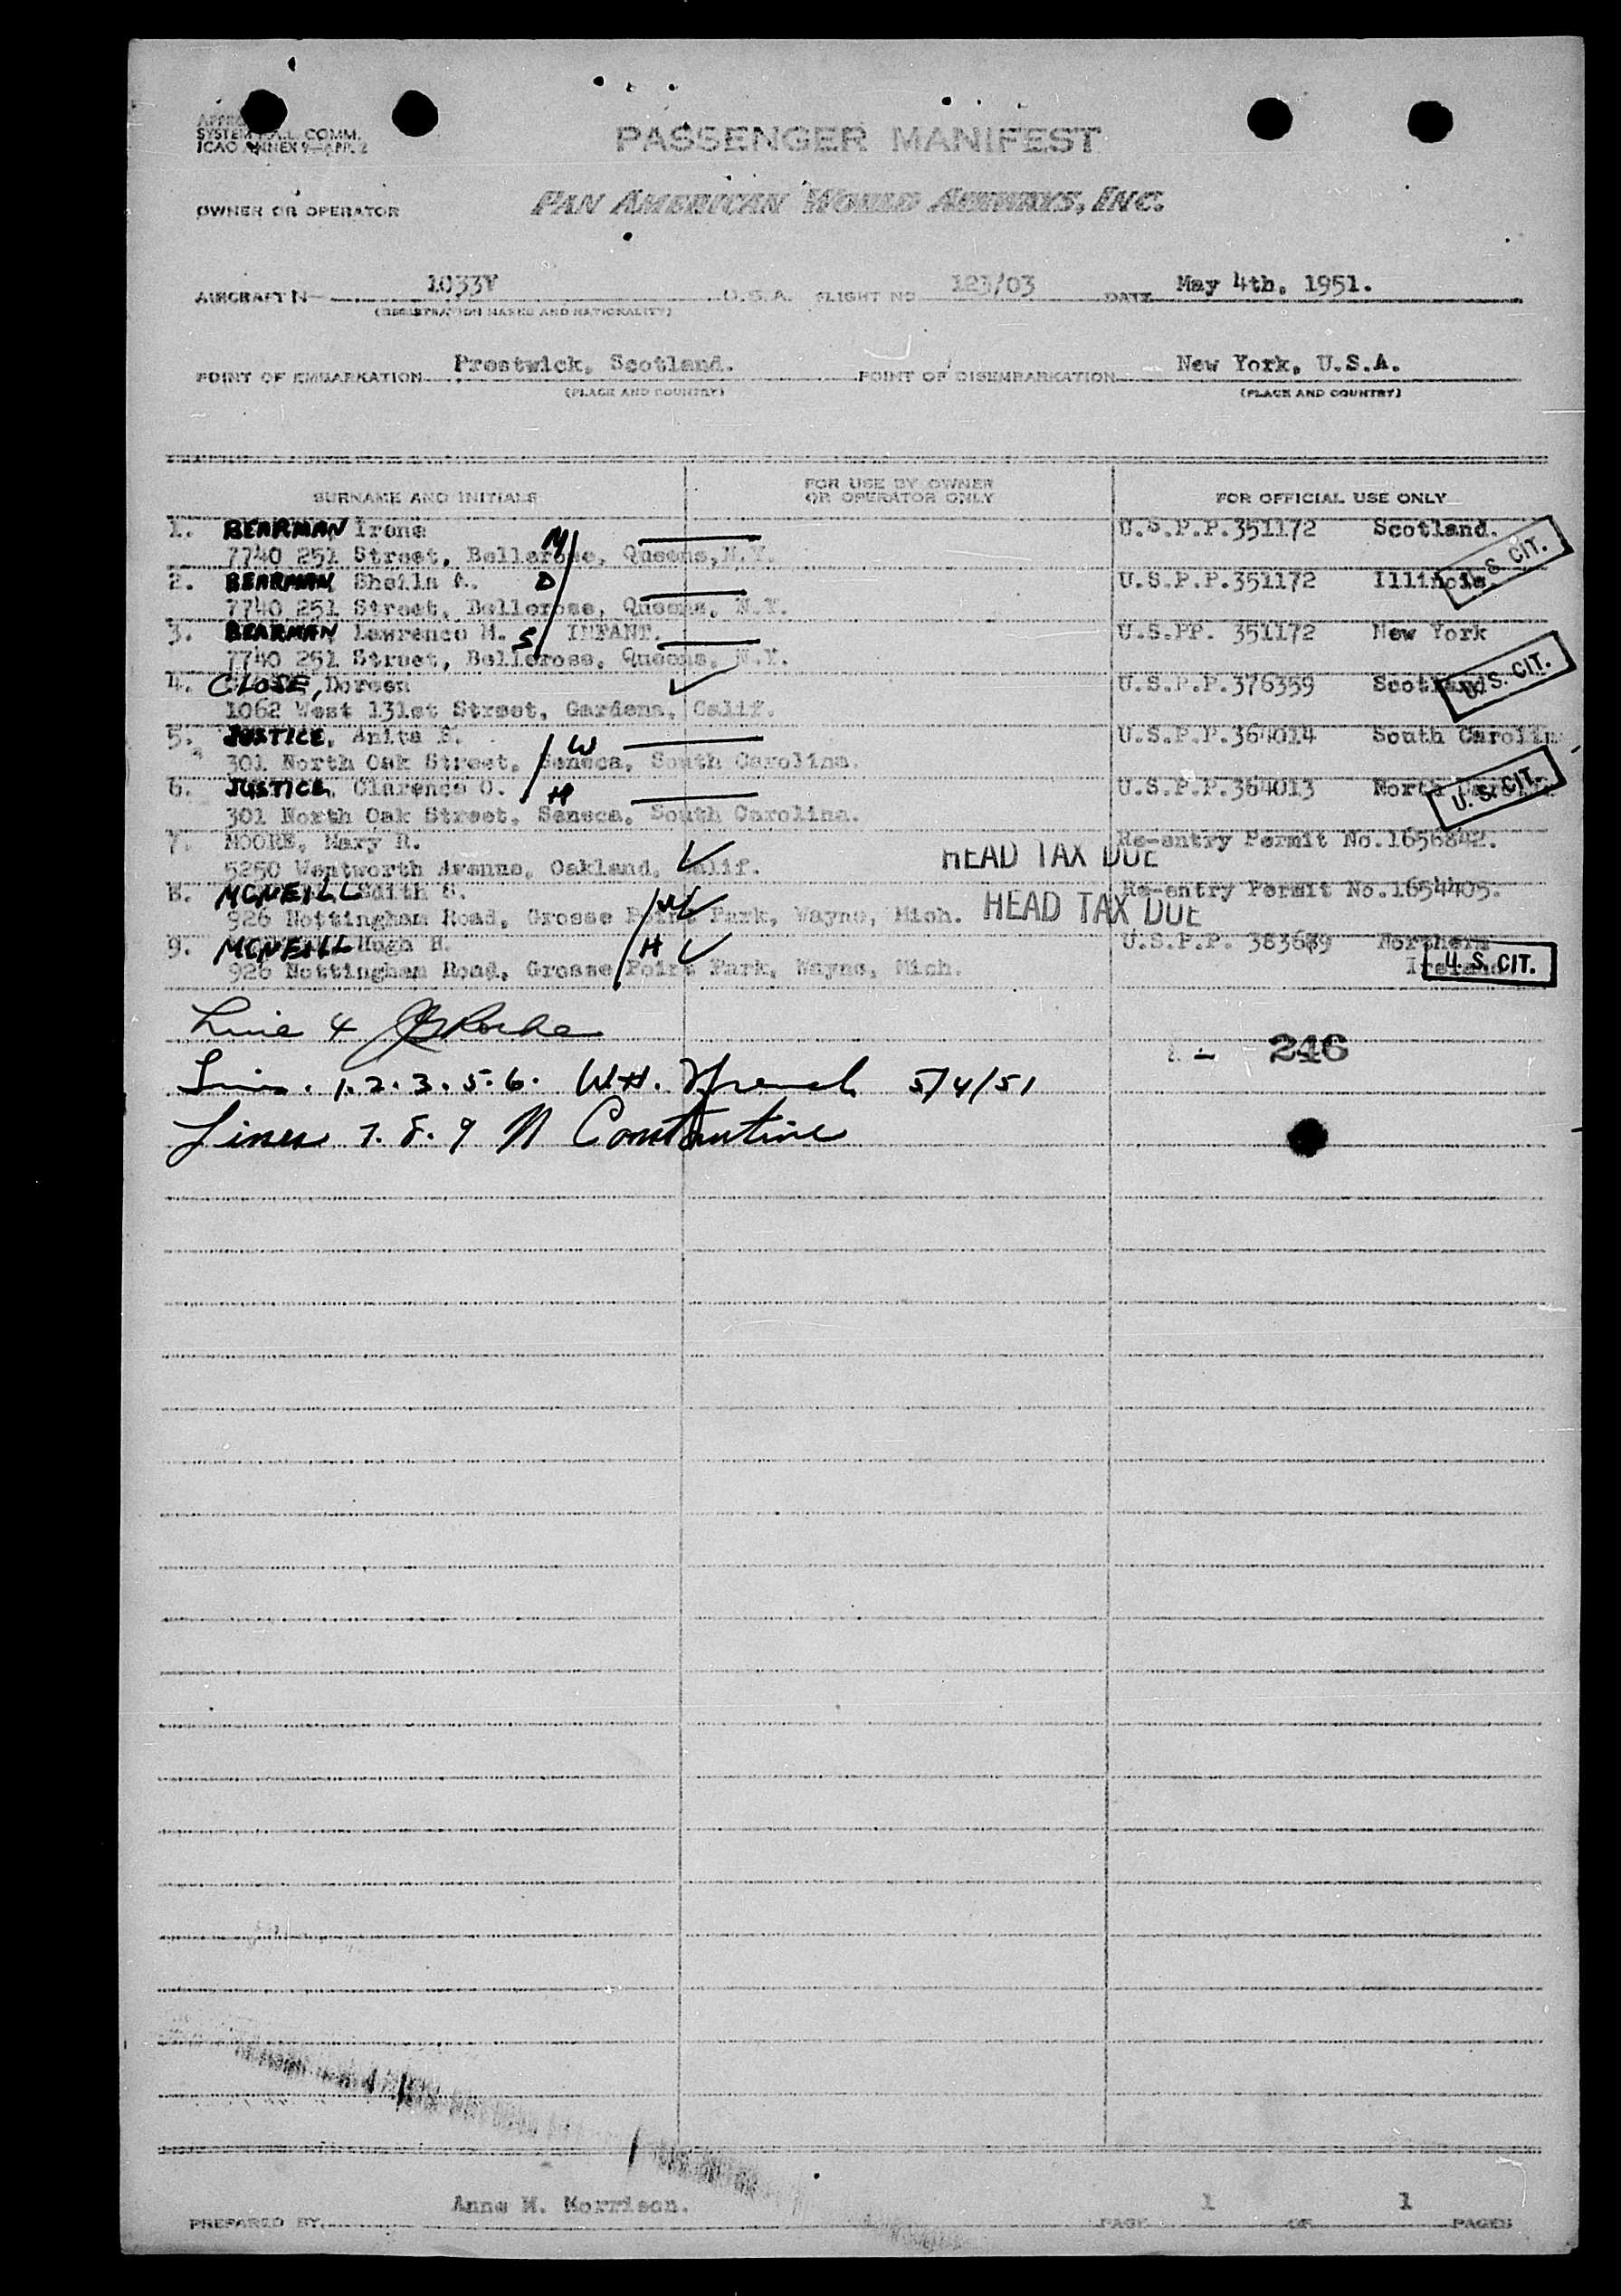 SYSTEM COMM.
ICAO ANNEX 9—APP. 2
PASSENGER MANIFEST
OWNER OR OPERATOR PAN AMERICAN WORLD AIRWAYS, INC.
AIRCRAFT N— 1033V U.S.A. FLIGHT NO 123/03 DATE May 4th, 1951.
(REGISTRATION MARKS AND NATIONALITY)
POINT OF EMBARKATION Prestwick, Scotland. POINT OF DISEMBARKATION New York, U.S.A.
(PLACE AND COUNTRY) (PLACE AND COUNTRY)
SURNAME AND INITIALS FOR USE BY OWNER OR OPERATOR ONLY FOR OFFICIAL USE ONLY
1. BEARMAN Irene M U.S.P.P.351172 Scotland.
7740 251 Street, Bellerose, Queens, N.Y. U. S. CIT.
2. BEARMAN Sheila A. D U.S.P.P.351172 Illinois.
7740 251 Street, Bellerose, Queens, N.Y.
3. BEARMAN Lawrence M. S INFANT. U.S.PP. 351172 New York
7740 251 Street, Bellerose, Queens, N.Y.
4. CLOSE, Doreen U.S.P.P.376359 Scotland U. S. CIT.
1062 West 131st Street, Gardena, Calif.
5. JUSTICE, Anita W U.S.P.P.364014 South Carolin
301 North Oak Street, Seneca, South Carolina.
6. JUSTICE, Clarence O. H U.S.P.P.364013 North U. S. CIT.
301 North Oak Street, Seneca, South Carolina.
7. MOORE, Mary R. Re-entry Permit No.1656842.
5250 Wentworth Avenue, Oakland, Calif. HEAD TAX DUE
8. MCNEILL Edith S. Re-entry Permit No.1654405.
926 Nottingham Road, Grosse Point Park, Wayne, Mich. HEAD TAX DUE
9. MCNEILL Hugh H. H U.S.P.P. 383689 Northern
926 Nottingham Road, Grosse Point Park, Wayne, Mich. Ireland U. S. CIT.
Line 4
246
Lines. 1. 2. 3. 5. 6. W.H. French 5/4/51
Lines 7. 8. 9 N Constantine
PREPARED BY Anne M. Morrison. PAGE 1 OF 1 PAGES